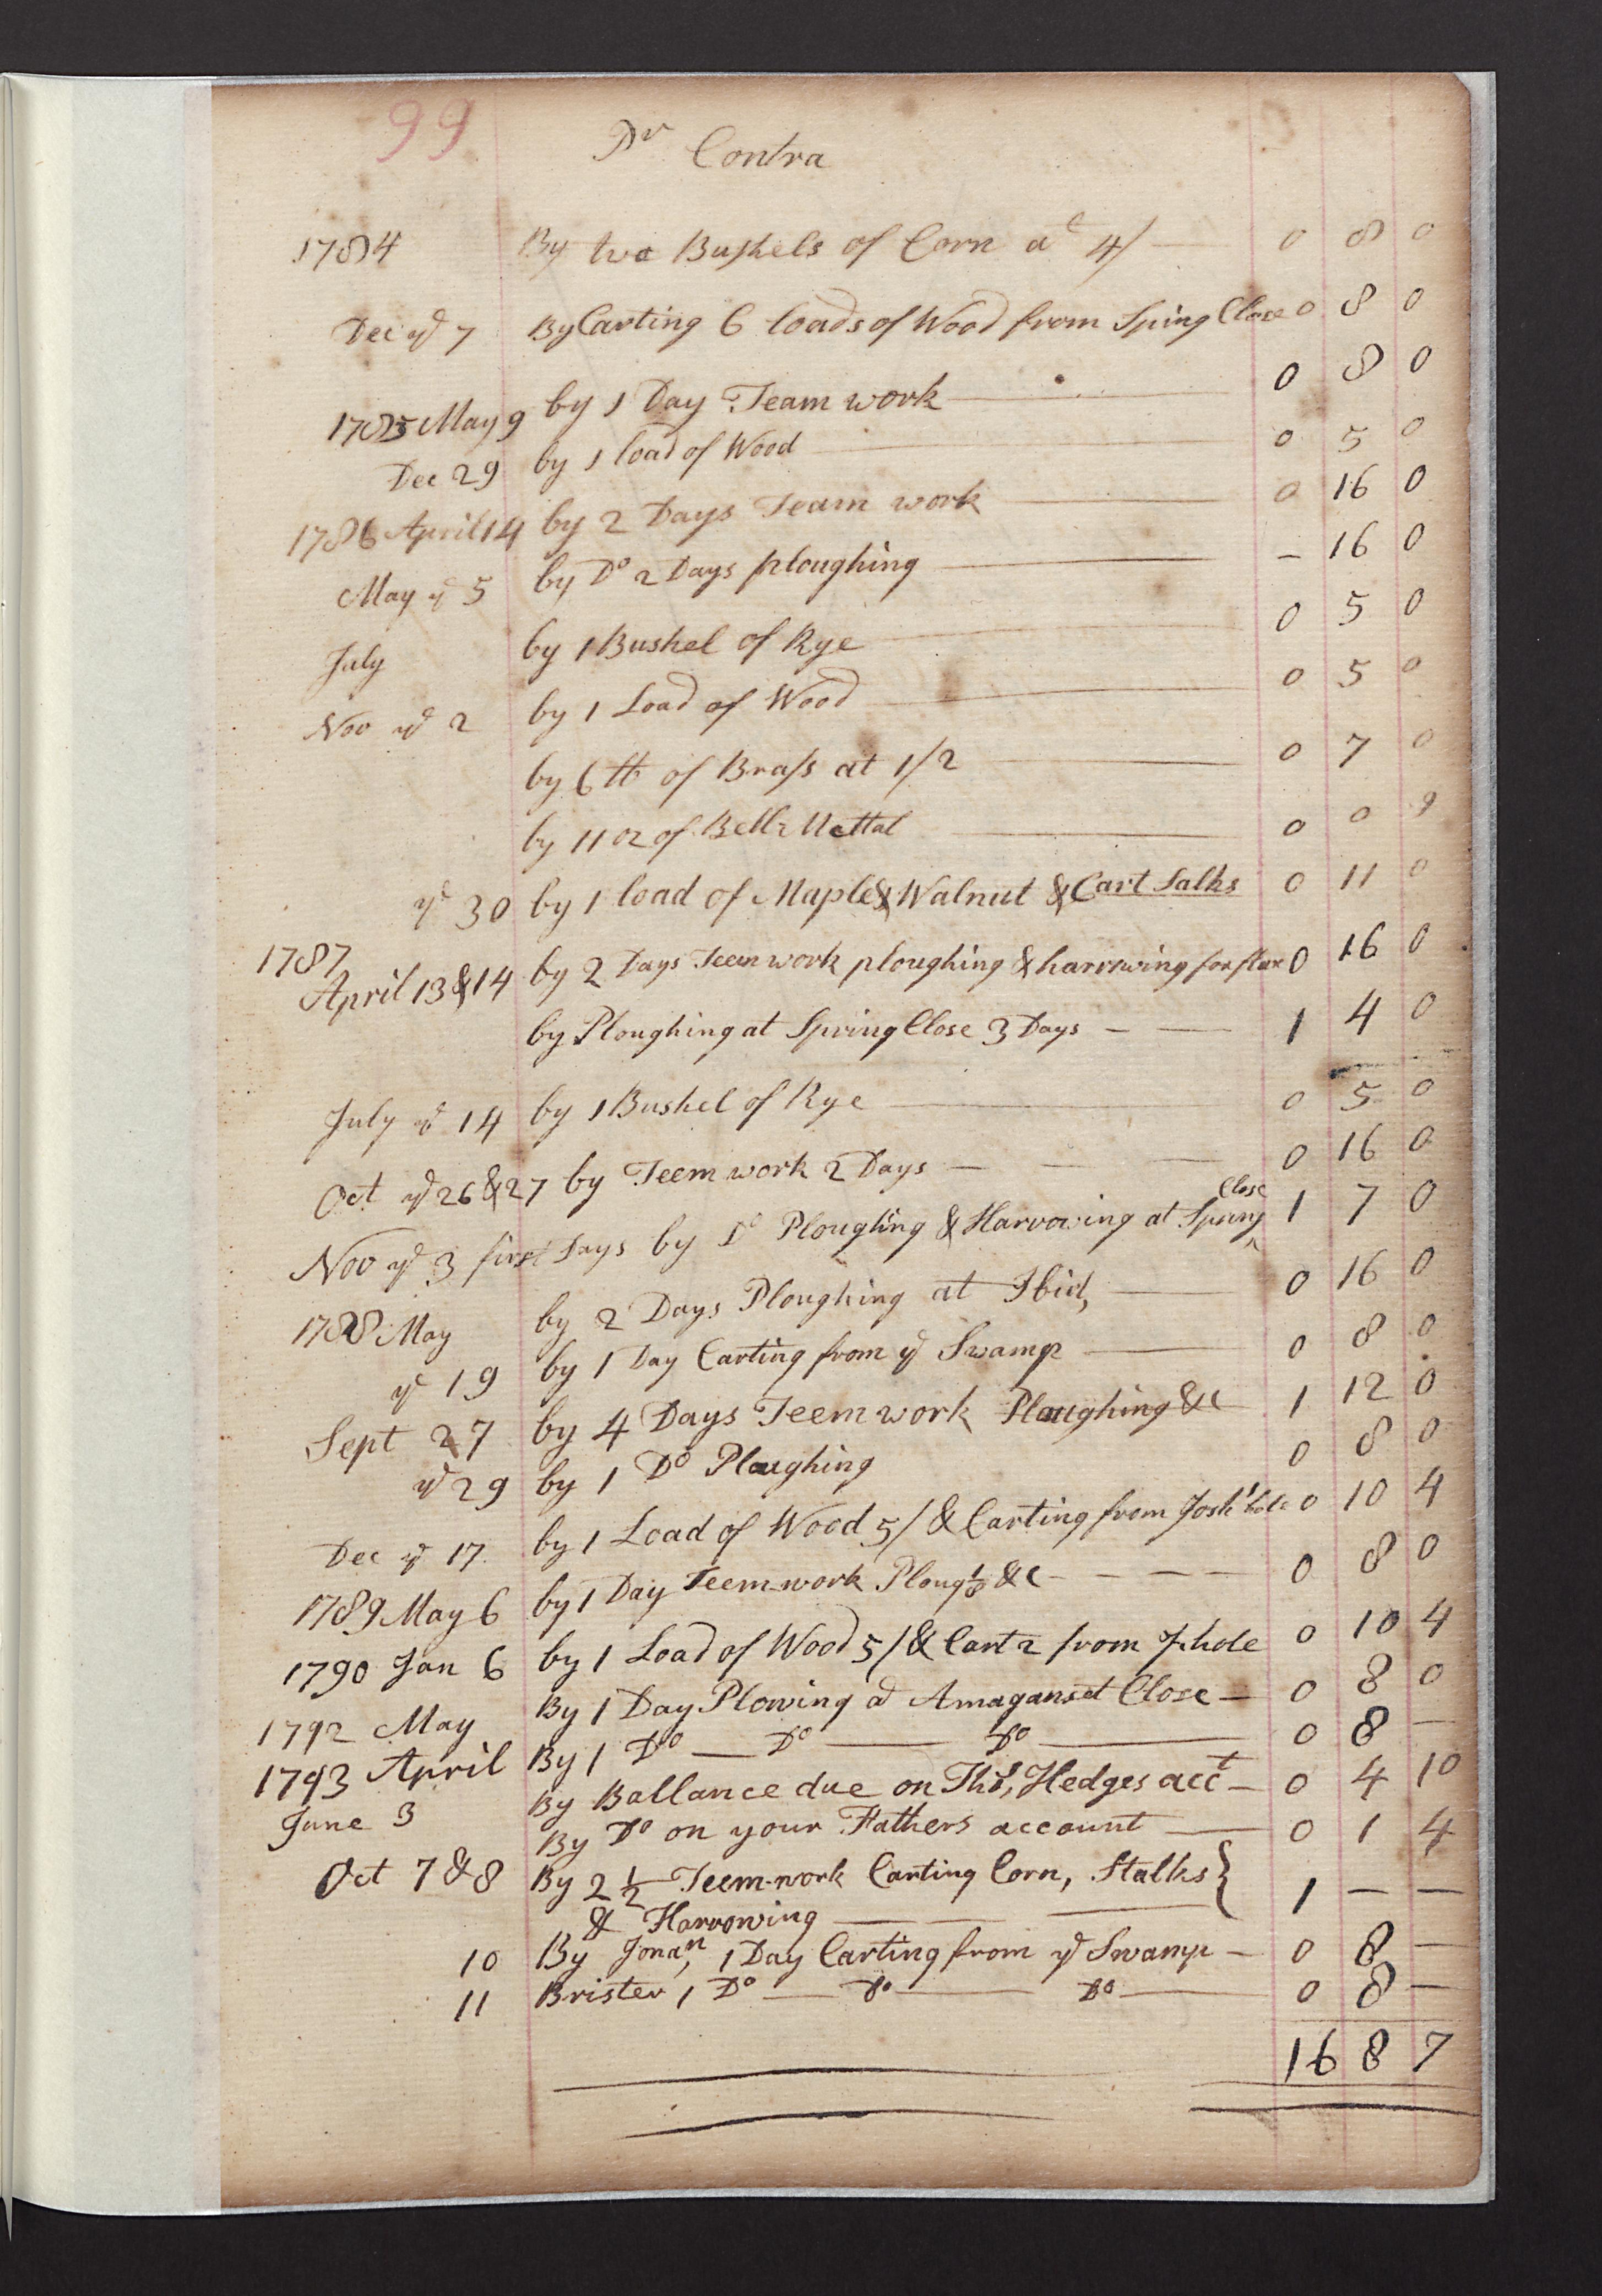 99
Dr Contra
1784 By two Bushels of Corn at 4/ 0 8 0
Dec ye 7 By Carting 6 loads of Wood from Sping Close 0 8 0
1785 May 9 by 1 Day Team work 0 8 0
Dec 29 by 1 load of Wood 0 5 0
1786 April 14 by 2 Days Team work 0 16 0
May ye 5 by Do 2 Days ploughing – 16 0
July by 1 Bushel of Rye 0 5 0
Nov ye 2 by 1 Load of Wood 0 5 0
by 6 lb of Brass at 1/2 0 7 0
by 11 oz of Bell Mettal 0 0 9
ye 30 by 1 load of Maple & Walnut & Cart Salks 0 11 0
1787
April 13 & 14 by 2 Days Teem work ploughing & harrowing for flax 0 16 0
by Ploughing at Spring Close 3 Days 1 4 0
July ye 14 by 1 Bushel of Rye 0 5 0
Oct ye 26 & 27 by Teem work 2 Days 0 16 0
Nov ye 3 first Days by Do Ploughing & Harrowing at Spring Close 1 7 0
1788 May by 2 Days Ploughing at Ibid, 0 16 0
ye 19 by 1 Day Carting from ye Swamp 0 8 0
Sept 27 by 4 Days Teem work Ploughing &c 1 12 0
ye 29 by 1 Do Ploughing 0 8 0
Dec ye 17 by 1 Load of Wood 5/ & Carting from Josh' hole 0 10 4
1789 May 6 by 1 Day Teem-work Ploug &c 0 8 0
1790 Jan 6 by 1 Load of Wood 5/ & Cart from hole 0 10 4
1792 May By 1 Day Plowing at Amaganset Close 0 8 0
1793 April By 1 Do — Do — Do — 0 8 —
June 3 By Ballance due on Thos, Hedges acct 0 4 10
By Do on your Fathers account 0 1 4
Oct 7 & 8 By 2 1/2 Teem-work Carting Corn, Stalks }
& Harrowing 1 — —
10 By Jonan, 1 Day Carting from ye Swamp 0 8 —
11 Brister 1 Do — Do — Do — 0 8 —
16 8 7